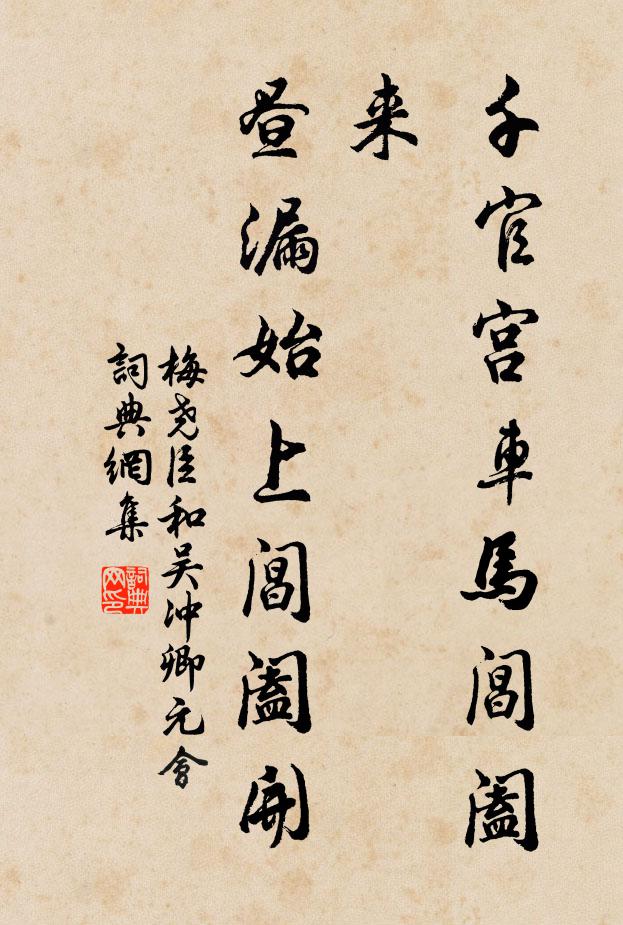 千官宫車馬閶闔
来
昼漏始上閶闔開
梅尧臣和吴冲卿元會
詞典網集
詞典
网印